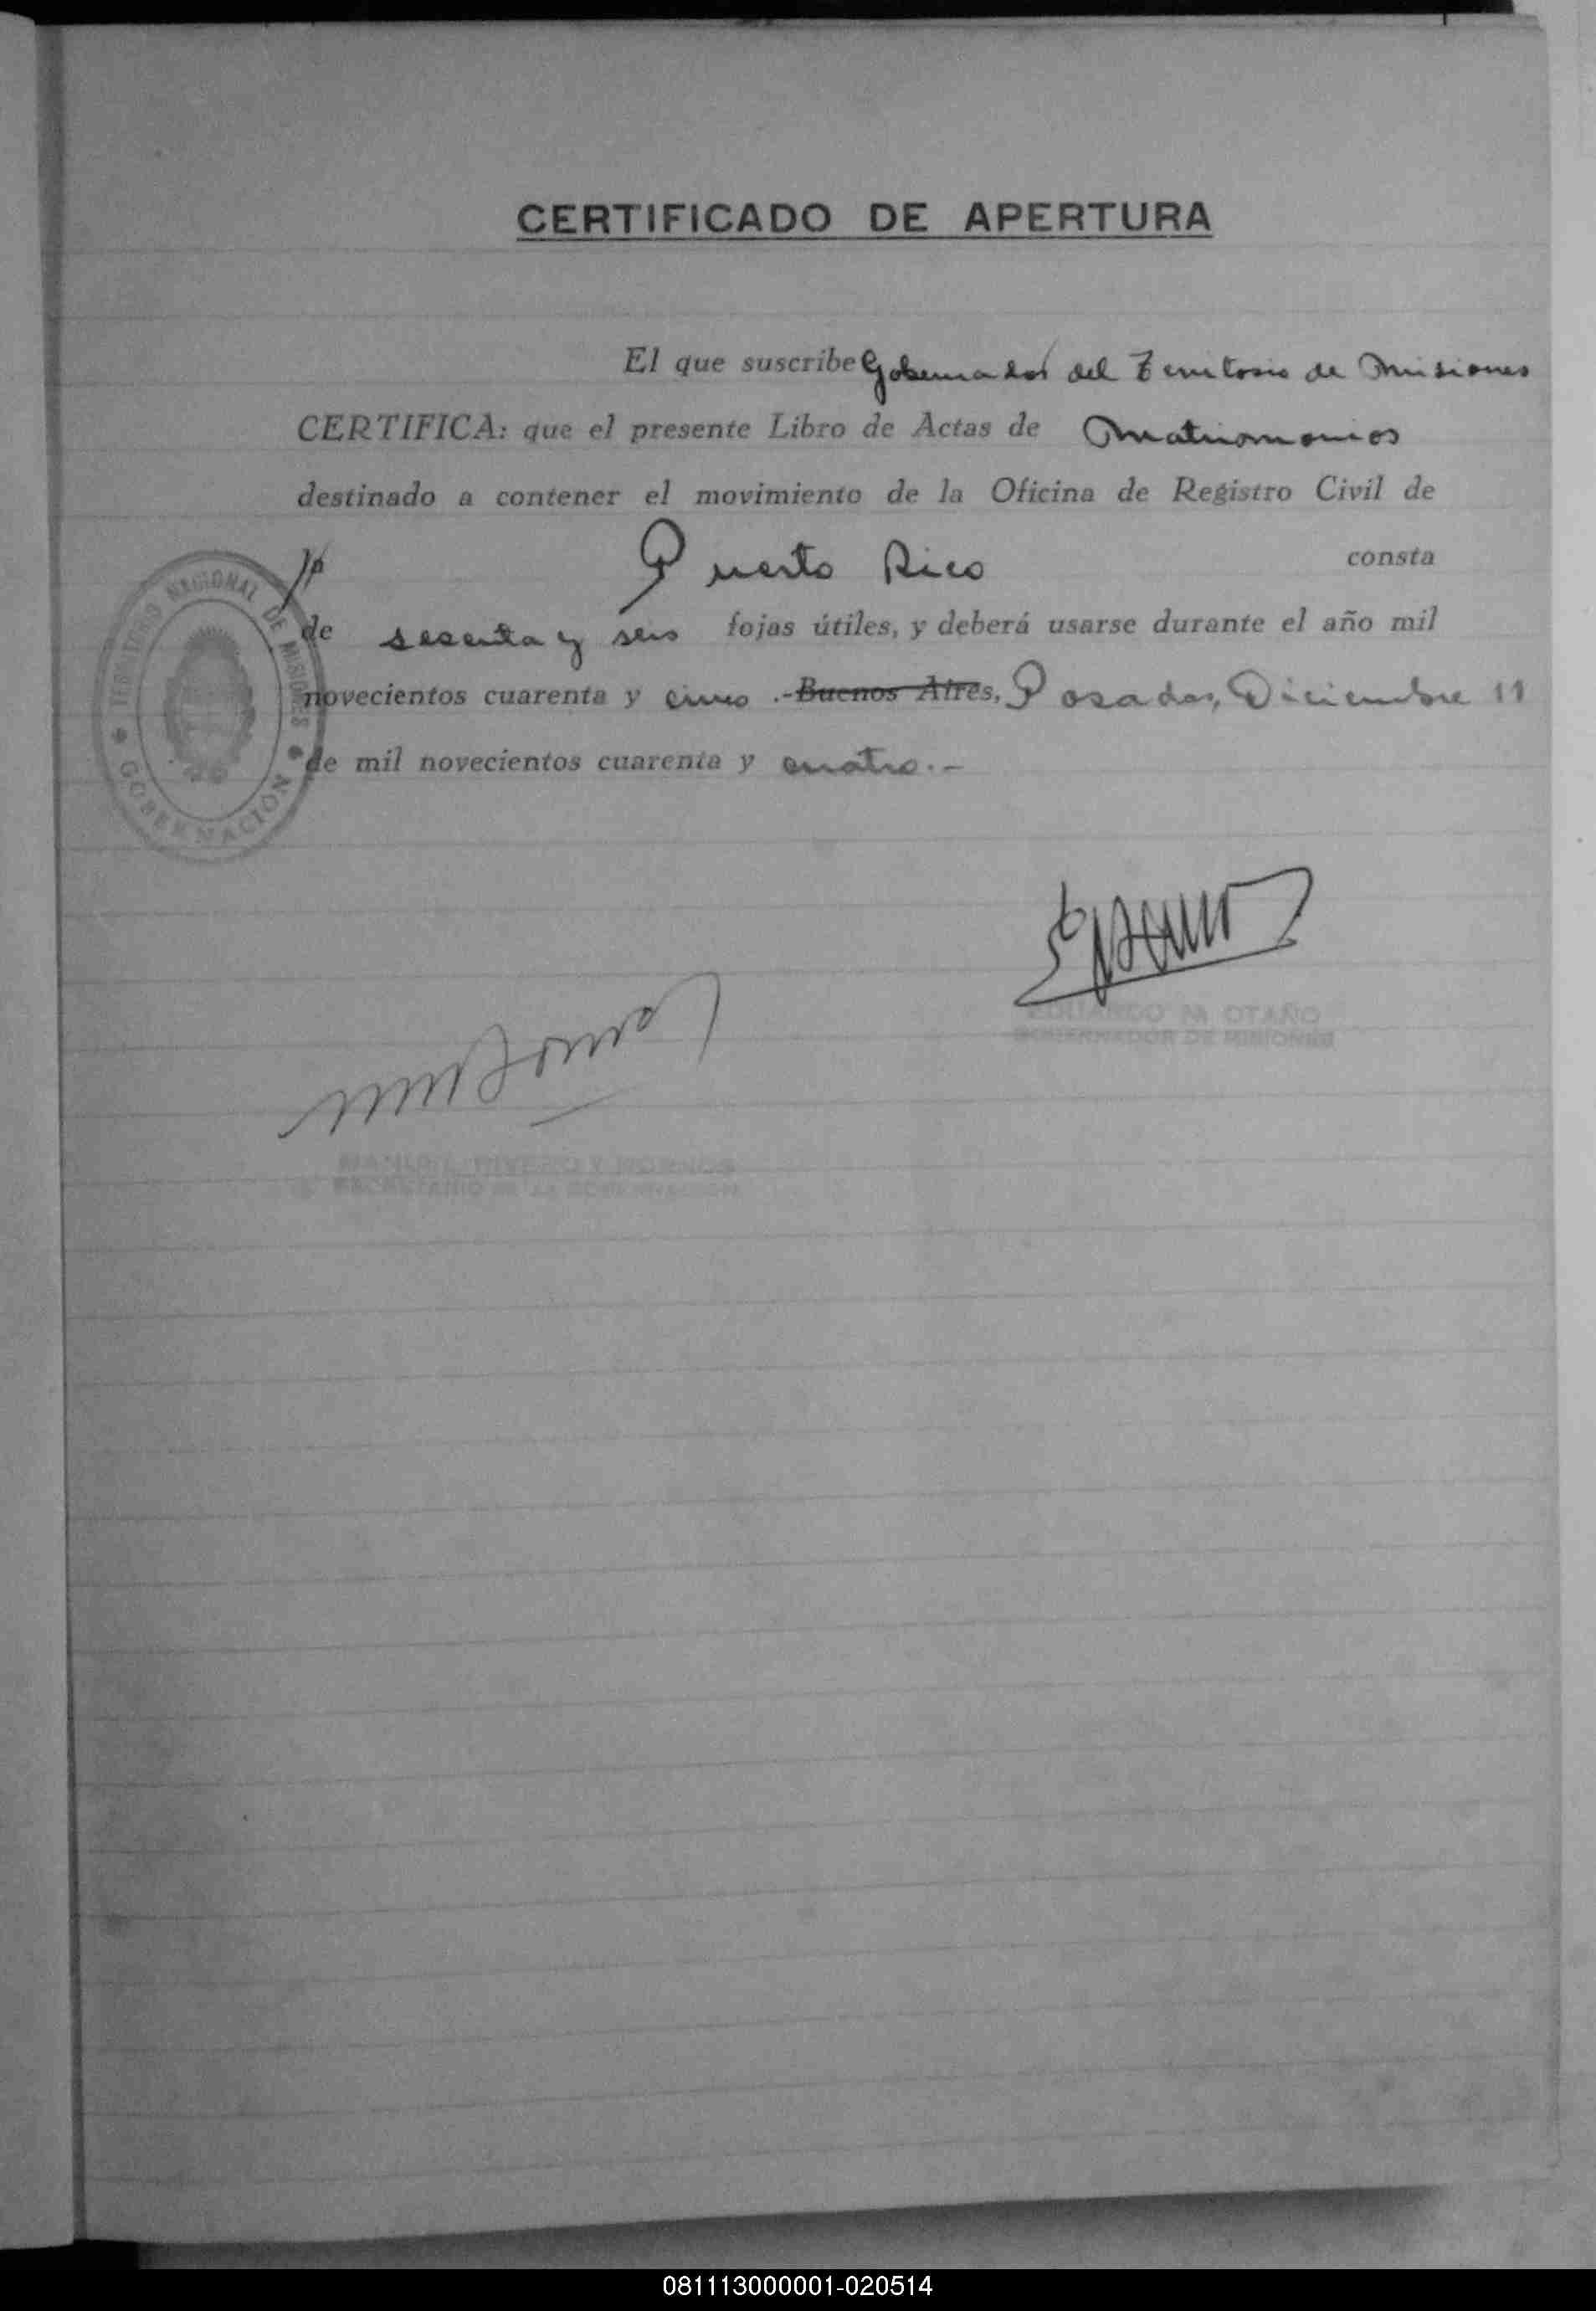 CERTIFICADO DE APERTURA
El que suscribe Gobernador del Territorio de Misiones
CERTIFICA: que el presente Libro de Actas de Matrimonios
destinado a contener el movimiento de la Oficina de Registro Civil de
Puerto Rico consta
de sesenta y seis fojas útiles, y deberá usarse durante el año mil
novecientos cuarenta y cinco .- Buenos Aires, Posadas, Diciembre 11
de mil novecientos cuarenta y cuatro.-
TERRITORIO NACIONAL DE MISIONES
GOBERNACIÓN
EDUARDO M OTAÑO
GOBERNADOR DE MISIONES
SECRETARIO DE LA GOBERNACION
081113000001-020514